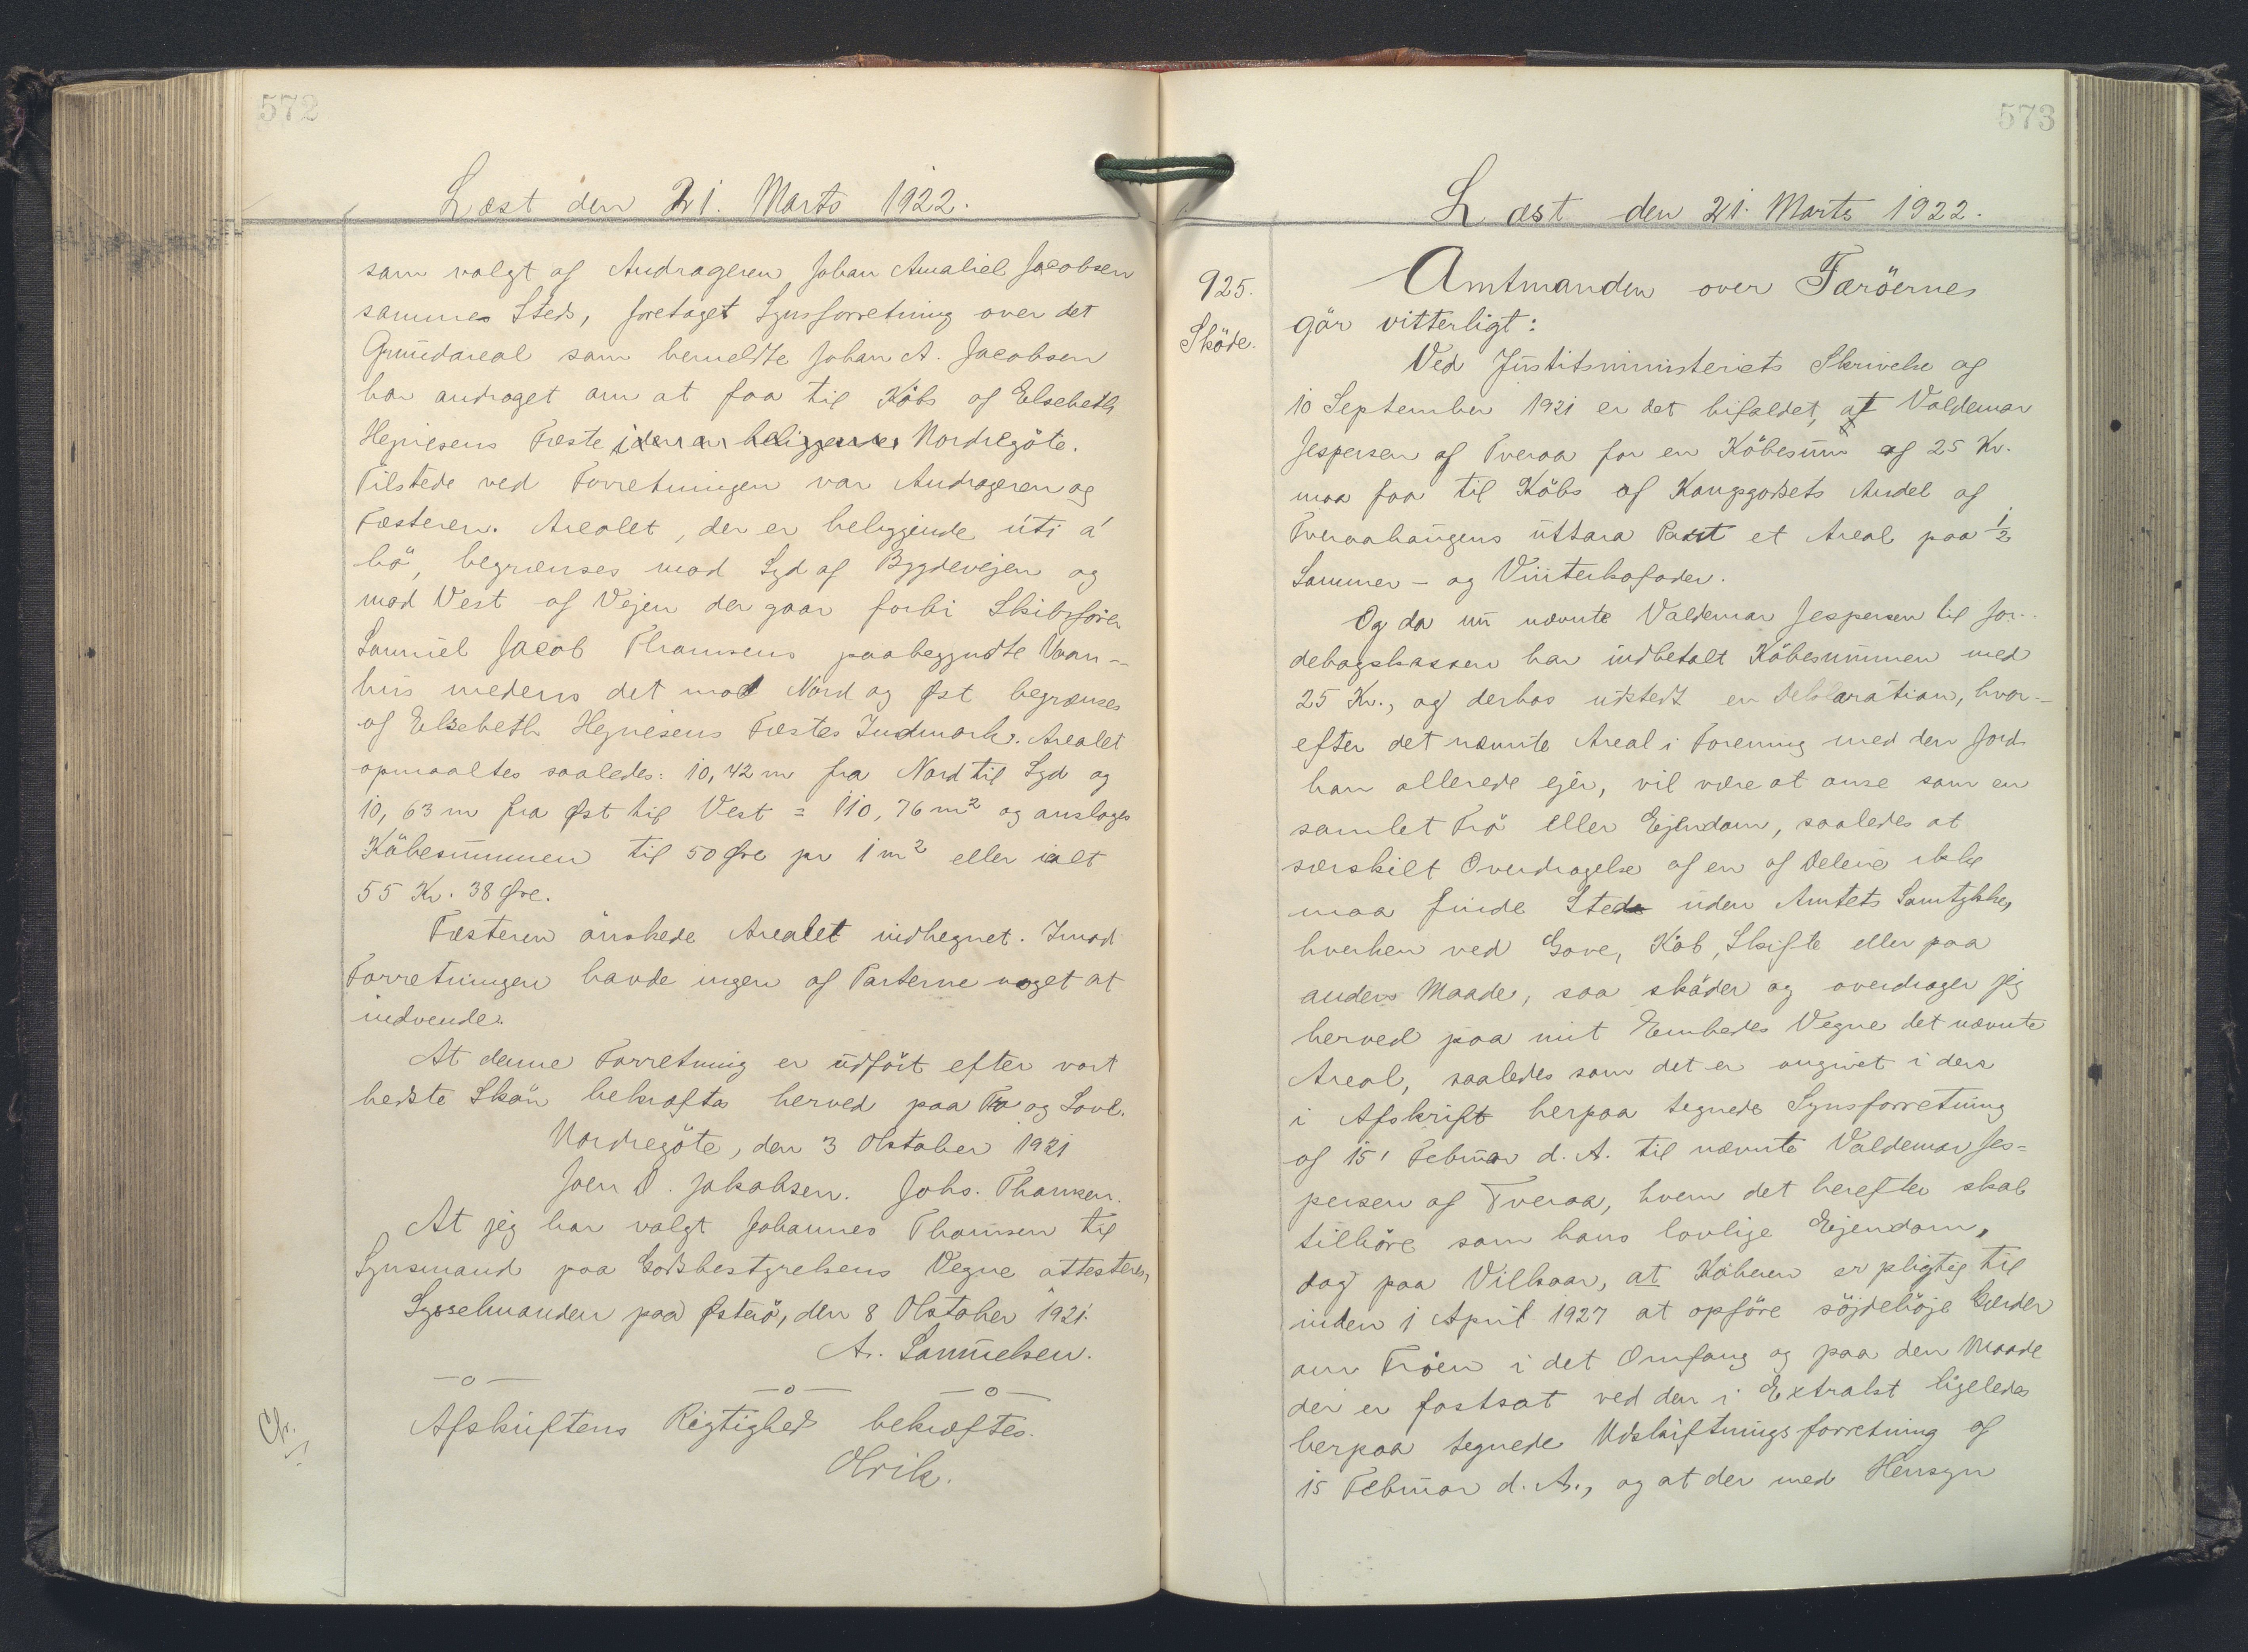 572
Læst den 21. Marts 1922.
som valgt af Andrageren Johan Amaliel Jacobsen
sammes Steds, foretaget Synsforretning over det
Grundareal som bemeldte Johan A. Jacobsen
har andraget om at faa til Købs af Elsebeth
Hejnesens Fæste Nordregöte.
Tilstede ved Forretningen var Andrageren og
Fæsteren. Arealet, der er beliggende úti á
bö, begrænses mod Syd af Bygdevejen og
mod Vest af Vejen der gaar forbi Skibsfører
Samuel Jacob Thomsens paabegyndte Vaan-
hus medens det mod Nord og Øst begrænses
af Elsebeth Hejnesens Fæstes Indmark. Arealet
opmaaltes saaledes: 10,42 m fra Nord til Syd og
10,63 m fra Øst til Vest = 110,76 m² og ansloges
Köbesummen til 50 Øre pr 1 m² eller ialt
55 Kr. 38 Øre.
Fæsteren önskede Arealet indhegnet. Imod
Forretningen havde ingen af Parterne noget at
indvende.
At denne Forretning er udfört efter vort
bedste Skön bekræftes herved paa Tro og Love.
Nordregöte, den 3 Oktober 1921
Joen Jakobsen. Johs. Thomsen.
At jeg har valgt Johannes Thomsen til
Synsmand paa Godsbestyrelsens Vegne attesteres,
Sysselmanden paa Østerö, den 8 Oktober 1921.
A. Samuelsen.
—o— —o— —o—
Afskriftens Rigtighed bekræftes.
Olrik.
Cfr.
573
Læst den 21. Marts 1922.
925.
Sköde.
Amtmanden over Færöerne
gör vitterligt:
Ved Justitsministeriets Skrivelse af
10 September 1921 er det bifaldet, at Valdemar
Jespersen af Tveraa for en Köbesum af 25 Kr.
maa faa til Köbs af Kongsgodsets Andel af
Tveraahaugens uttara Part et Areal paa ½
Sommer- og Vinterkofoder.
Og da nu nævnte Valdemar Jespersen til Jor-
debogskassen har indbetalt Köbesummen med
25 Kr., og derhos udstedt en Deklaration, hvor-
efter det nævnte Areal i Forening med den Jord
han allerede ejer, vil være at anse som en
samlet Trö eller Ejendom, saaledes at
særskilt Overdragelse af en af Delene ikke
maa finde Sted uden Amtets Samtykke,
hverken ved Gave, Köb, Skifte eller paa
anden Maade, saa sköder og overdrager jeg
herved paa mit Embedes Vegne det nævnte
Areal, saaledes som det er angivet i den
i Afskrift herpaa tegnede Synsforretning
af 15' Februar d. A. til nævnte Valdemar Jes=
persen af Tveraa, hvem det herefter skal
tilhöre som hans lovlige Ejendom,
dog paa Vilkaar, at Köberen er pligtig til
inden 1 April 1927 at opföre söjdehöje Gærder
om Tröen i det Omfang og paa den Maade
der er fastsat ved den i Extrakt ligeledes
herpaa tegnede Udskiftningsforretning af
15 Februar d. A., og at der med Hensyn